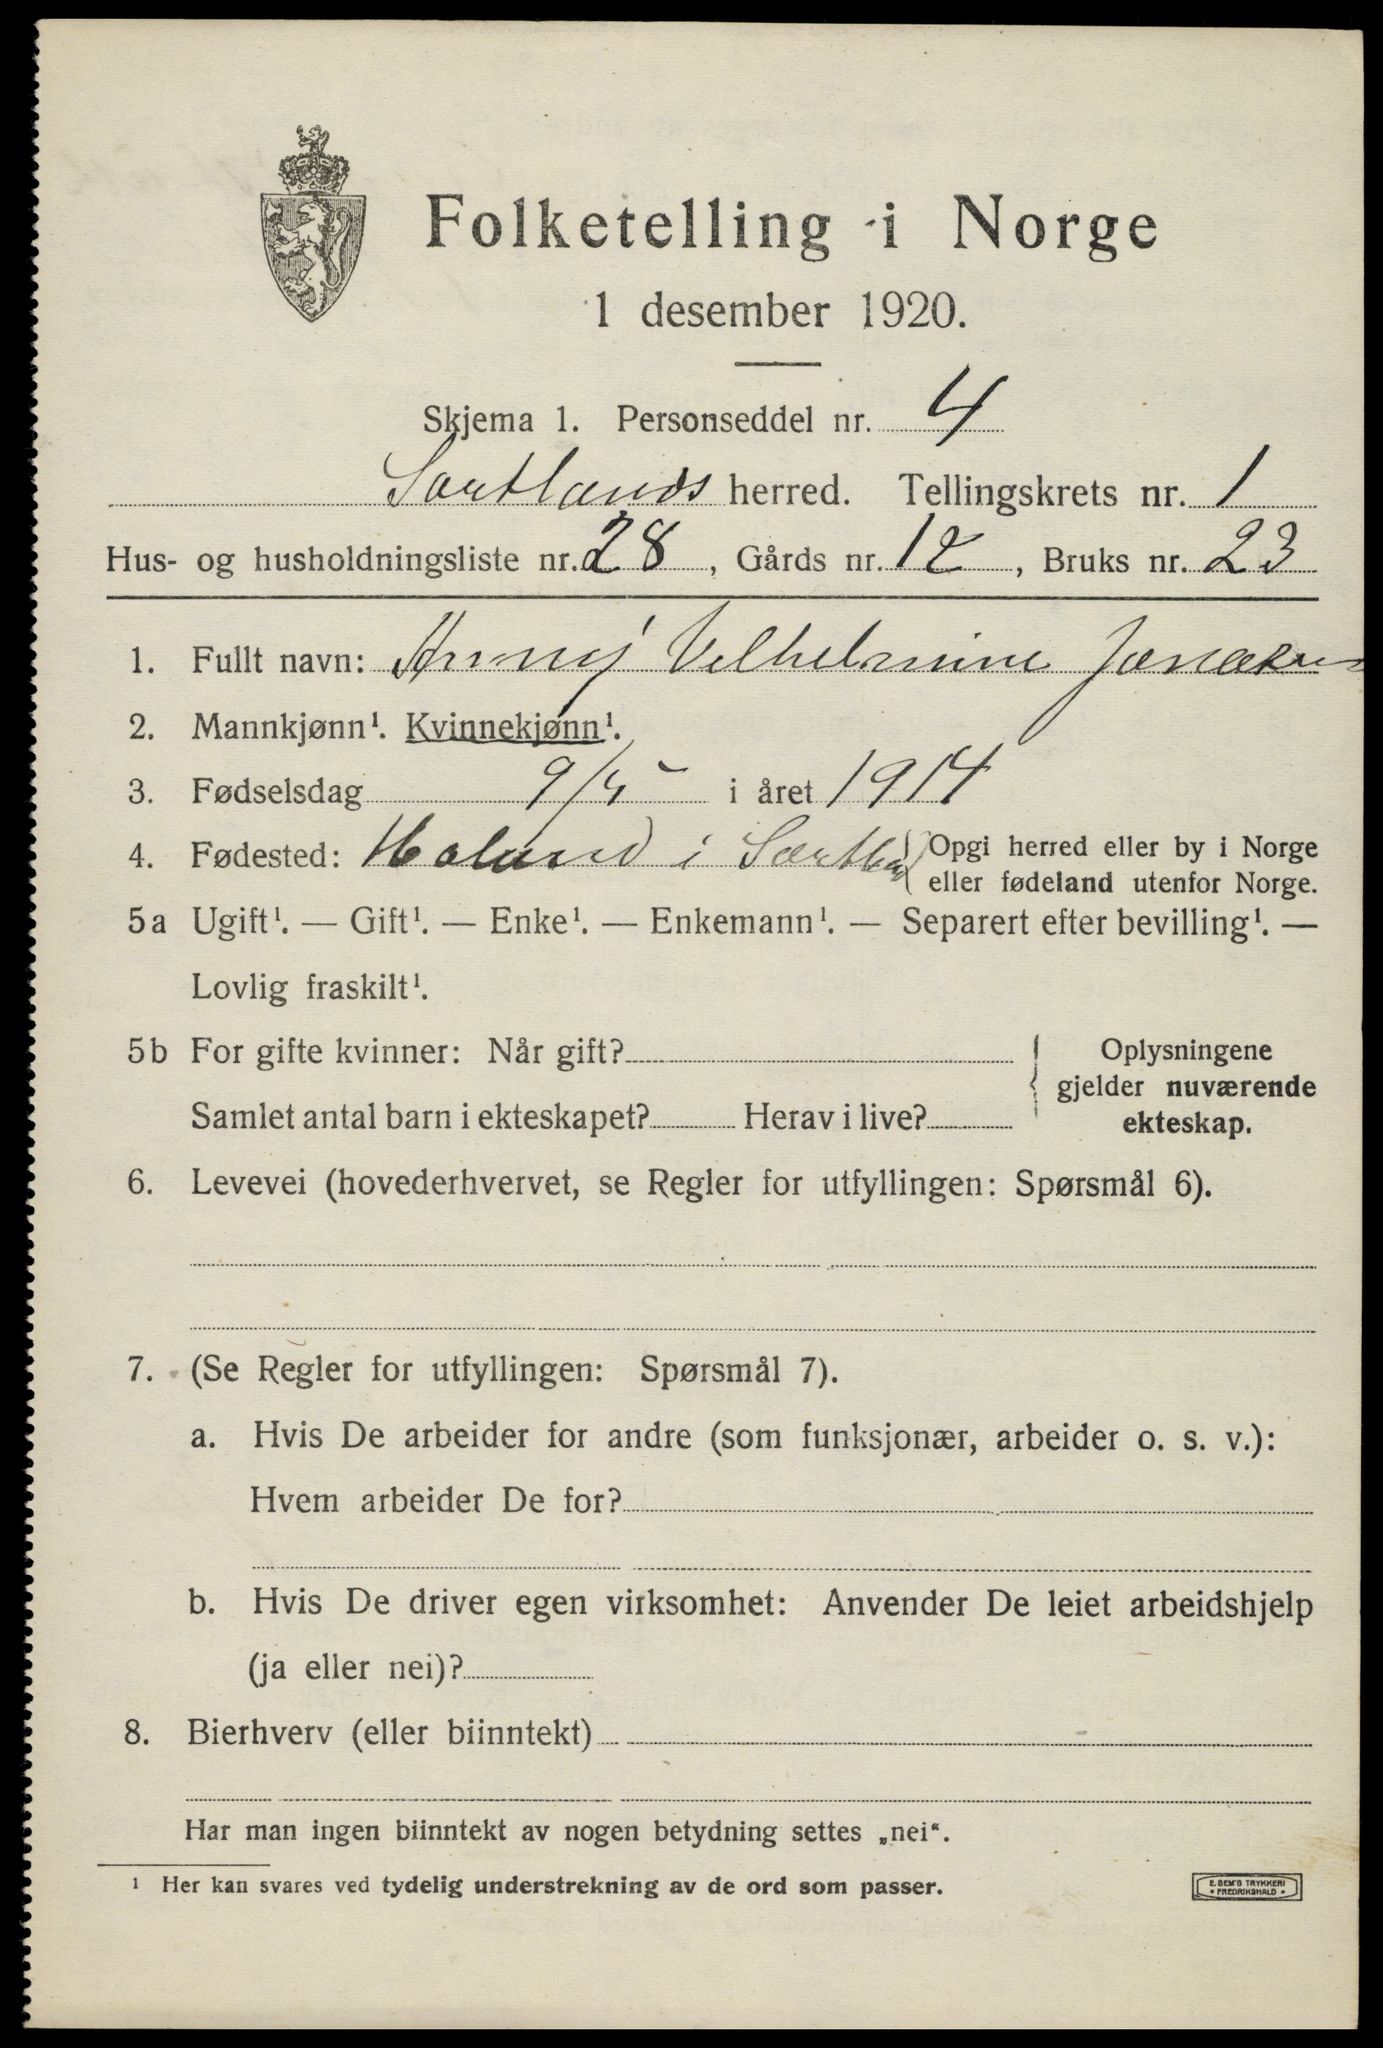 Folketelling i Norge
1 desember 1920.
Skjema 1. Personseddel nr. 4
Sortlands herred. Tellingskrets nr. 1
Hus- og husholdningsliste nr. 28, Gårds nr. 12, Bruks nr. 23
1. Fullt navn: Anny Vilhelmine
2. Mannkjønn¹. Kvinnekjønn¹.
3. Fødselsdag 9/5 i året 1914
4. Fødested: Holand i Sortland { Opgi herred eller by i Norge
eller fødeland utenfor Norge.
5a Ugift¹. — Gift¹. — Enke¹. — Enkemann¹. — Separert efter bevilling¹. —
Lovlig fraskilt¹.
5b For gifte kvinner: Når gift? Oplysningene
gjelder nuværende
Samlet antal barn i ekteskapet? Herav i live? ekteskap.
6. Levevei (hovederhvervet, se Regler for utfyllingen: Spørsmål 6).
7. (Se Regler for utfyllingen: Spørsmål 7).
a. Hvis De arbeider for andre (som funksjonær, arbeider o. s. v.):
Hvem arbeider De for?
b. Hvis De driver egen virksomhet: Anvender De leiet arbeidshjelp
(ja eller nei)?
8. Bierhverv (eller biinntekt)
Har man ingen biinntekt av nogen betydning settes „nei“.
¹ Her kan svares ved tydelig understrekning av de ord som passer.
E. SEM'S TRYKKERI
* FREDRIKSHALD *